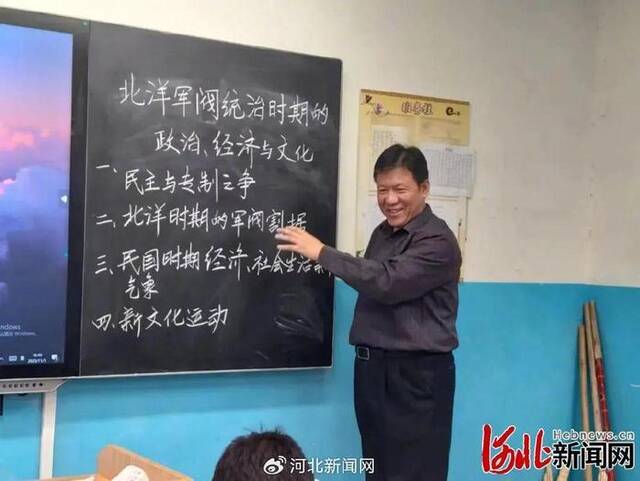 北洋军阀统治时期的
政治、经济与文化
一、
民主与专制之争
二、北洋时期的军阀割据
三、民国时期经济、社会生活新
气象
四、新文化运动
班务栏
Windows
河北新闻网
河北新闻网
Hebnews.cn